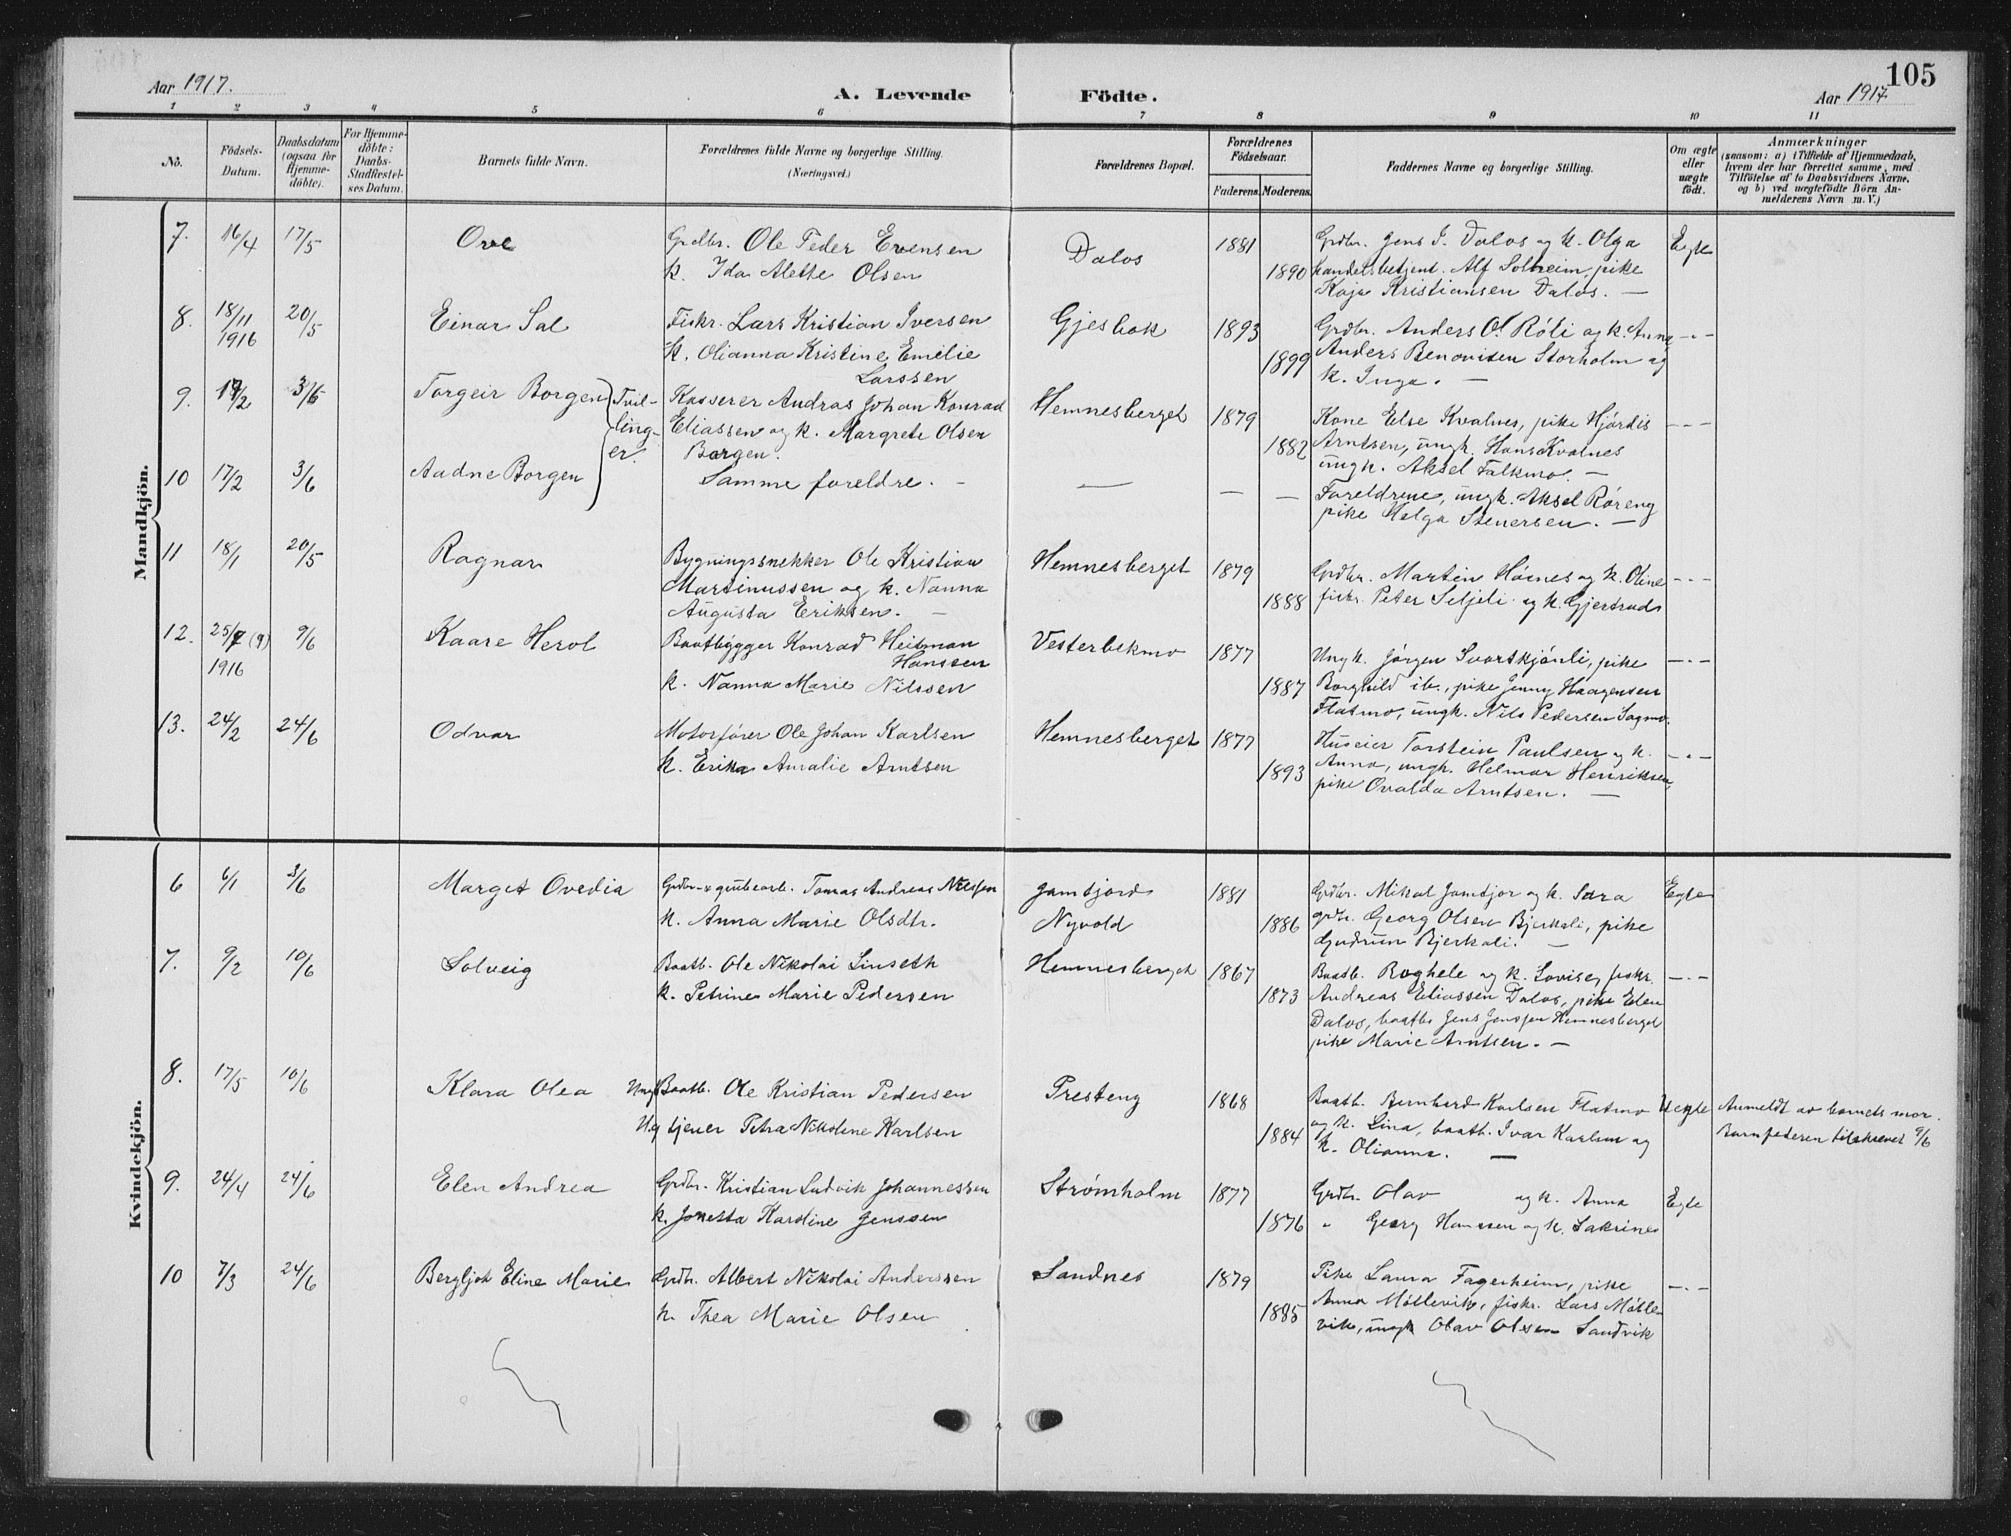 105
Aar 1917. A. Levende Födte. Aar 1917
1 2 3 4 5 6 7 8 9 10 11
No. Födsels-Datum. Daabsdatum (ogsaa for Hjemmedöbte). For Hjemmedöbte: Daabs-Stadfæstelses Datum. Barnets fulde Navn. Forældrenes fulde Navne og borgerlige Stilling. (Næringsvei.) Forældrenes Bopæl. Forældrenes Födselsaar. Faderens. Moderens. Faddernes Navne og borgerlige Stilling. Om ægte eller uægte födt. Anmærkninger
(saasom: a) i Tilfælde af Hjemmedaab, hvem der har forrettet samme, med Tilföielse af to Daabsvidners Navne, og b) ved uægtefödte Börn Anmelderens Navn m. V.)
Mandkjön.
7. 16/4 17/5 Ove Grdbr. Ole Peder Evensen Dalos 1881 Grdbr. Jens J. Dalos og k. Olga Egte
k. Ida Alette Olsen 1890 handelsbetjent. Alf Solheim, pike
Kaja Kristiansen Dalos. —
8. 18/11 1916 20/5 Einar Sal Fiskr. Lars Kristian Iversen Gjesbak 1893 Grdbr. Anders O. Röli og k. Anna -"-
k. Olianna Kristine Emelie 1899 Anders Benonisen Storholm og
Larssen k. Inga. —
9. 17/2 3/6 Torgeir Borgen Tvillinger. Kasserer Andras Johan Konrad Hemnesberget 1879 Kone Else Kvalnes, pike Hjördis -"-
Eliassen og k. Margrete Olsen 1882 Arntsen, ungk. Hans Kvalnes
Borgen. ungk. Aksel Falkmo. —
10 17/2 3/6 Aadne Borgen Samme foreldre. — — — — Foreldrene, ungk. Aksel Röreng
pike Helga Stenersen. —
11 18/1 20/5 Ragnar Bygningssnekker Ole Kristian Hemnesberget 1879 Grdbr. Martin Höines og k. Oline -"-
Martinussen og k. Nanna 1888 fiskr. Peter Seljeli og k. Gjertrud
Augusta Eriksen. —
12. 25/7 (9) 1916 9/6 Kaare Herol Baatbygger Konrad Heitman Vesterbekmo 1877 Ungk. Jörgen Svartkjönli, pike -"-
Hanssen
k. Nanna Marie Nilssen 1887 Borghild ib., pike Jenny Haagensen
Flatmo, ungk. Nils Pedersen Sagmo.
13. 24/2 24/6 Odvar Motorförer Ole Johan Karlsen Hemnesberget 1877 Huseier Torstein Paulsen og k. -"-
k. Erika Amalie Arntsen 1893 Anna, ungk. Helmar Henriksen,
pike Ovalda Arntsen. —
Kvindekjön.
6 6/1 3/6 Marget Ovedia Grdbr. Tomas Andreas Nilssen Jamtjord 1881 Grdbr. Mikal Jamtjor og k. Sara Egte
k. Anna Marie Olsdtr. Nyvold 1886 grdbr. Georg Olsen Bjerkali, pike
Gudrun Bjerkali. —
7. 9/2 10/6 Solveig Baatb. Ole Nikolai Linseth Hemnesberget 1867 Baatb. Roghele og k. Lovise, fiskr. -"-
k. Petrine Marie Pedersen 1873 Andreas Eliassen Dalos, pike Elen
Dalos, baatb. Jens Jenssen Hemnesberget
pike Marie Arntsen. —
8. 17/5 10/6 Klara Olea Ungk. Baatb. Ole Kristian Pedersen Presteng 1868 Baatb. Bernhard Karlsen Flatmo Uegte Anmeldt av barnets mor.
Ug. tjener Petra Nikoline Karlsen 1884 og k. Lina, baatb. Ivar Karlsen og Barnfaderen tilskrevet 9/6
k. Olianna. —
9. 24/4 24/6 Elen Andrea Grdbr. Kristian Ludvik Johannessen Strømholm 1877 Grdbr. Olav og k. Anna Egte
k. Jonetta Karoline Jenssen 1876 " Georg Hanssen og k. Sakrine
10 7/3 24/6 Bergljot Eline Marie Grdbr. Albert Nikolai Anderssen Sandnes 1879 Pike Laura Fagerheim, pike -"-
k. Thea Marie Olsen 1885 Anna Möllevik, fiskr. Lars Mölle-
vik, ungk Olav Olssen Sandvik